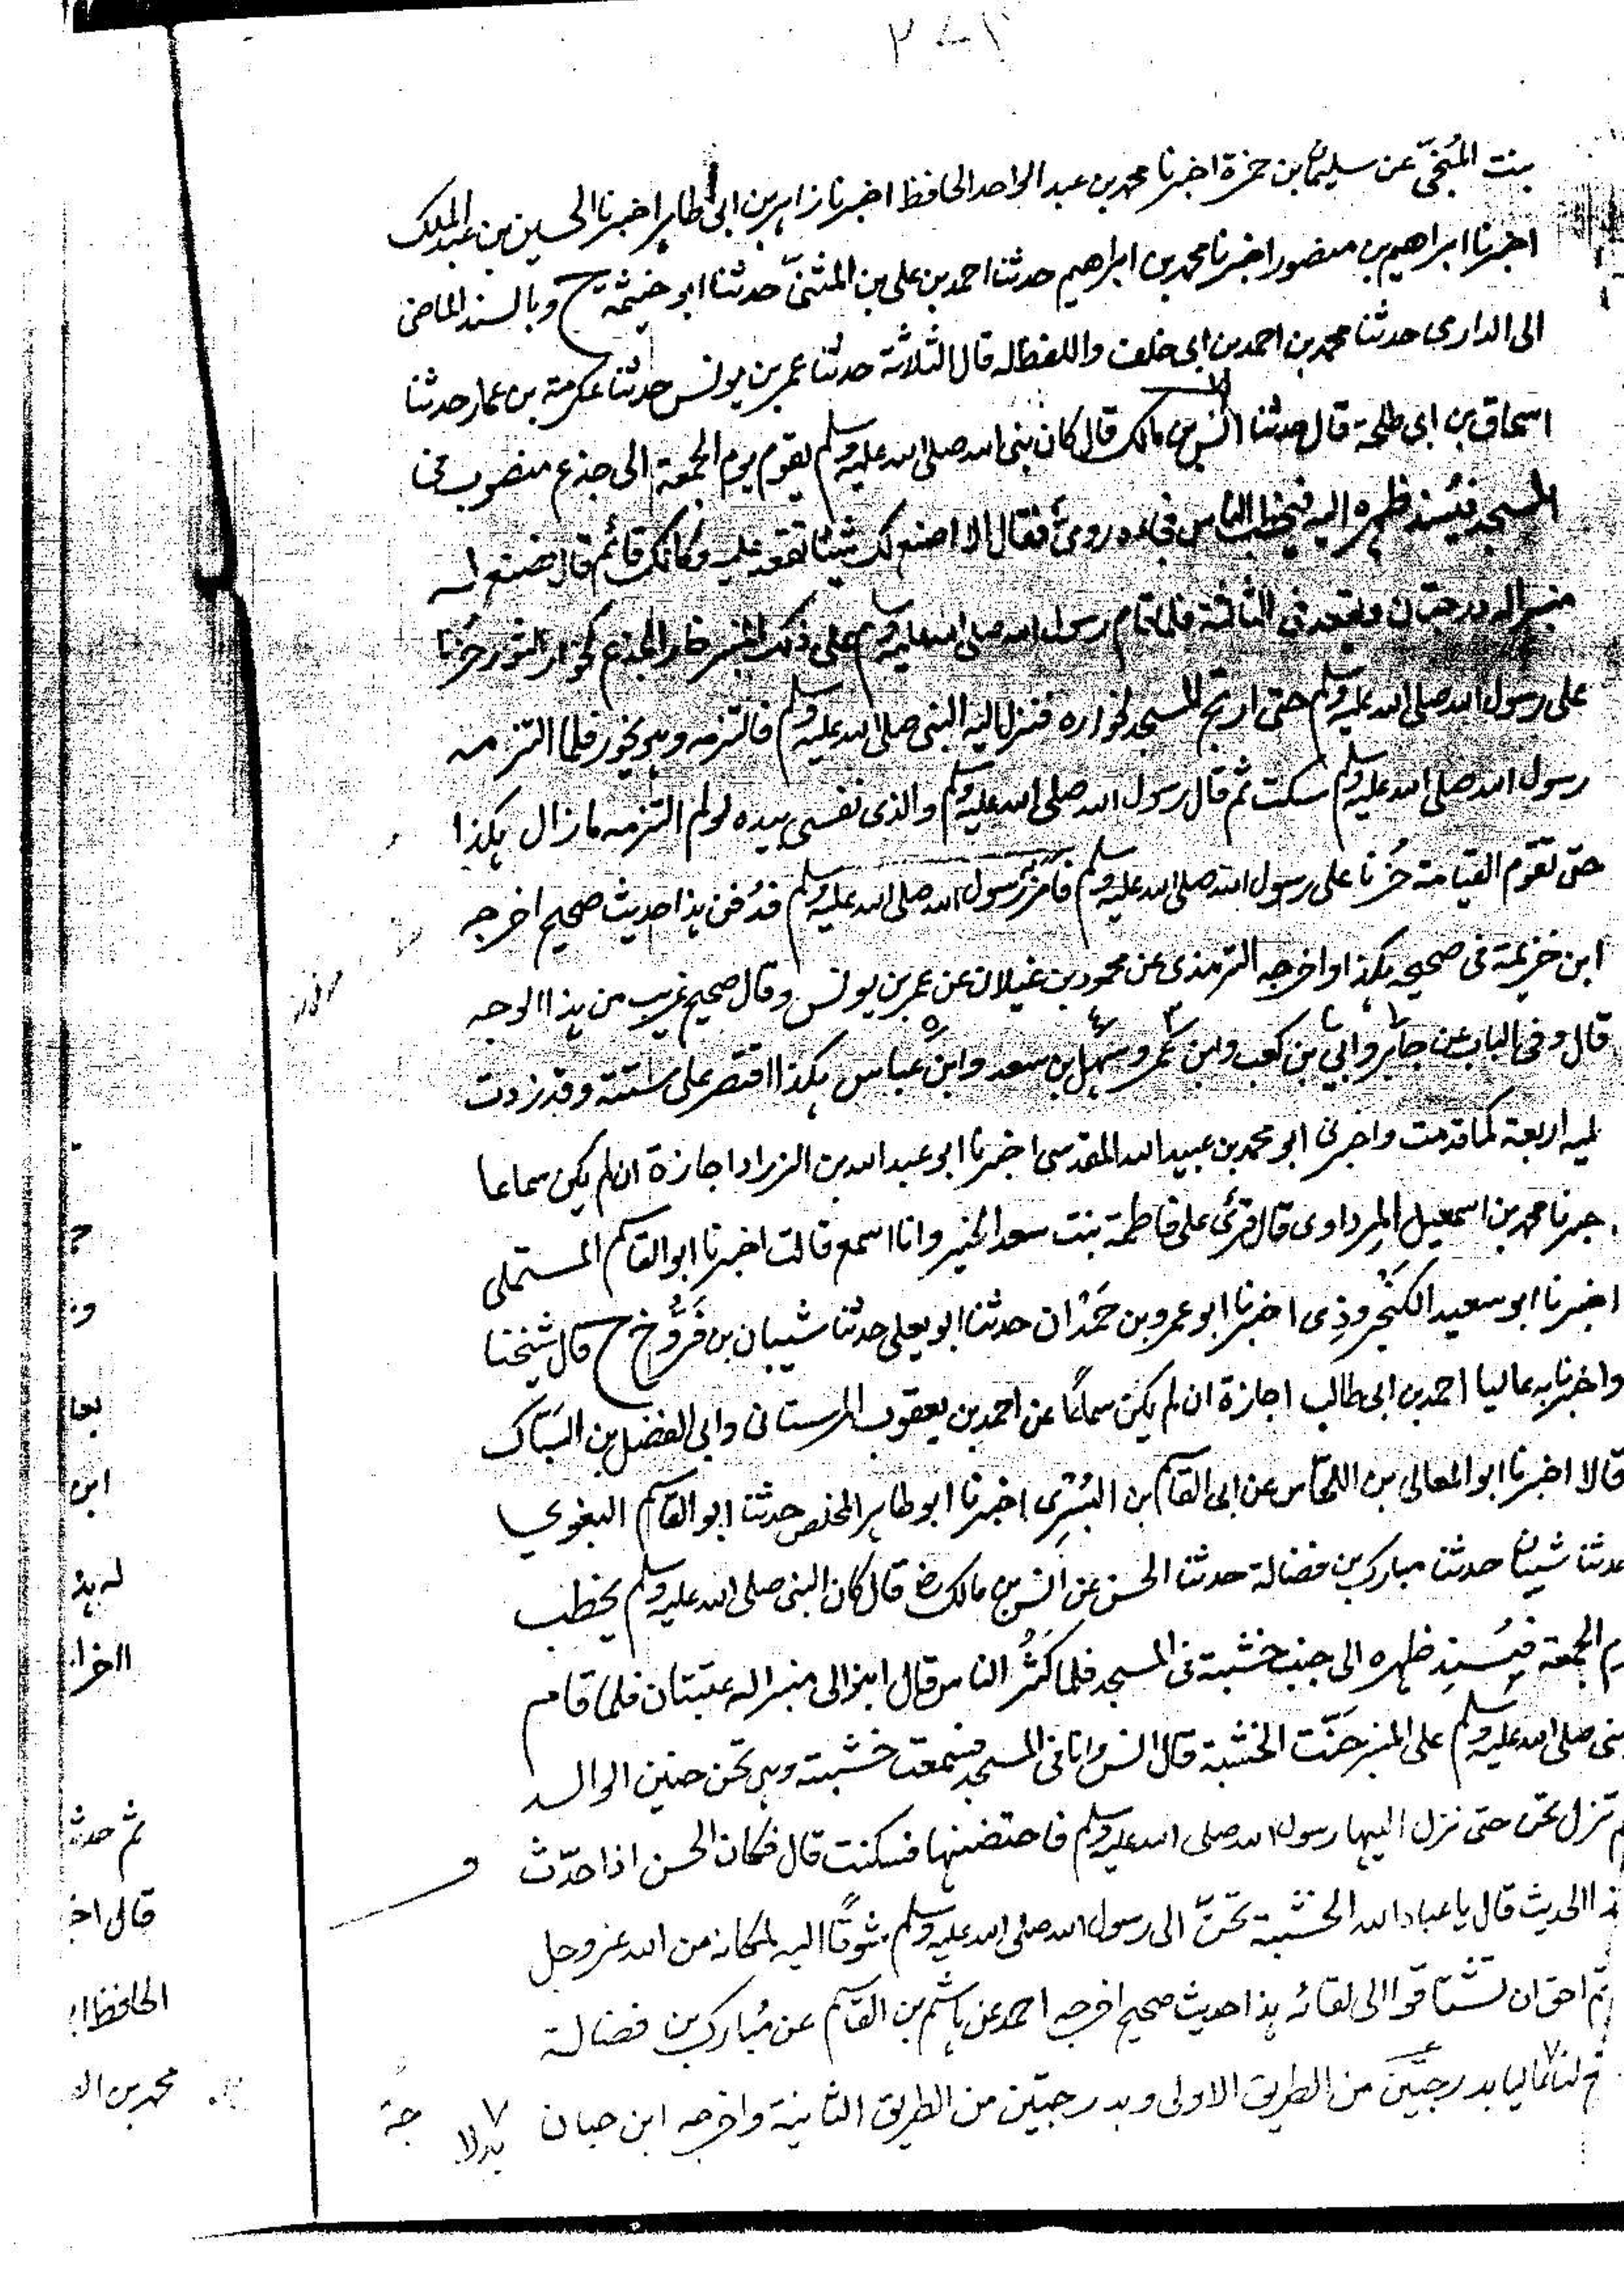 ٢٨٢
بنت المُنَجّى عن سليمان بن حمزة اخبرنا محمد بن عبد الواحد الحافظ اخبرنا زاهر بن ابى طاهر اخبرنا الحسين بن عبد الملك
اخبرنا ابراهيم بن منصور اخبرنا محمد بن ابراهيم حدثنا احمد بن على بن المثنّى حدثنا ابو خيثمة ح وبالسند الماضى
الى الدارمى حدثنا محمد بن احمد بن ابى خلف واللفظ له قال الثلاثة حدثنا عمر بن يونس حدثنا عكرمة بن عمار حدثنا
اسحاق بن ابى طلحة قال حدثنا انس بن مالك قال كان نبى الله صلى الله عليه وسلم يقوم يوم الجمعة الى جذع منصوب فى
المسجد فيُسند ظهره اليه فيخطب الناس فجاءه رومىٌّ فقال الا اصنع لك شيئا تقعد عليه وكانك قائم قال فصنع له
منبرا له درجتان ويقعد فى الثالثة فلما قام رسول الله صلى الله عليه وسلم على ذلك المنبر خار الجذع كخوار الثور حُزنا
على رسول الله صلى الله عليه وسلم حتى ارتج المسجد لخواره فنزل اليه النبى صلى الله عليه وسلم فالتزمه وهو يخور فلما التزمه
رسول الله صلى الله عليه وسلم سكت ثم قال رسول الله صلى الله عليه وسلم والذى نفسى بيده لو لم التزمه ما زال هكذا
حتى تقوم القيامة حُزنا على رسول الله صلى الله عليه وسلم فامر به رسول الله صلى الله عليه وسلم فدُفن هذا حديث صحيح اخرجه
ابن خزيمة فى صحيحه هكذا واخرجه الترمذى عن محمود بن غيلان عن عمر بن يونس وقال صحيح غريب من هذا الوجه
قال وفى الباب عن جابر وابي بن كعب وابن عمر وسهل بن سعد وابن عباس هكذا اقتصر على ستة وقد زدت
ليه اربعة كما قدمت واخبرنى ابو محمد بن عبيد الله المقدسى اخبرنا ابو عبد الله بن الزراد اجازة ان لم يكن سماعا
خبرنا محمد بن اسمعيل المِرداوى قال قرئ على فاطمة بنت سعد الخير وانا اسمع قالت اخبرنا ابو القاسم المستملى
اخبرنا ابو سعيد الكَنْجروذِى اخبرنا ابو عمرو بن حَمْدان حدثنا ابو يعلى حدثنا شيبان بن فَرُّوخ ح قال شيخنا
واخبرنا به عاليا احمد بن ابى طالب اجازة ان لم يكن سماعًا عن احمد بن يعقوب المارستانى وابى الفضل بن السباك
قالا اخبرنا ابو المعالى بن اللحاس عن ابى القاسم بن البُسْرى اخبرنا ابو طاهر المخلص حدثنا ابو القاسم البغوي
حدثنا شيبان حدثنا مبارك بن فضالة حدثنا الحسن عن انس بن مالك رض قال كان النبى صلى الله عليه وسلم يخطب
م الجمعة فيُسنِد ظهره الى جنب خشبة فى المسجد فلما كَثُر الناس قال ابنوا لى منبرا له عتبتان فلما قام
نبى صلى الله عليه وسلم على المنبر حَنّت الخشبة قال انس وانا فى المسجد فسمعت خشبته وهى تحن حنين الواله
م تزل تحن حتى نزل اليها رسول الله صلى الله عليه وسلم فاحتضنها فسكنت قال فكان الحسن اذا حدّث
ذا الحديث قال يا عباد الله الخشبة تحنّ الى رسول الله صلى الله عليه وسلم شوقًا اليه لمكانه من الله عز وجل
تم احق ان تشتاقوا الى لقائه هذا حديث صحيح اخرجه احمد عن هاشم بن القاسم عن مُبارك بن فضالة
ع لنا عاليا بدرجتين من الطريق الاولى وبدرجتين من الطريق الثانية واخرجه ابن حبان
بدلا
ابن
له هذ
ثم حدث
قال اخ
الحافظ ا
محمد بن ال